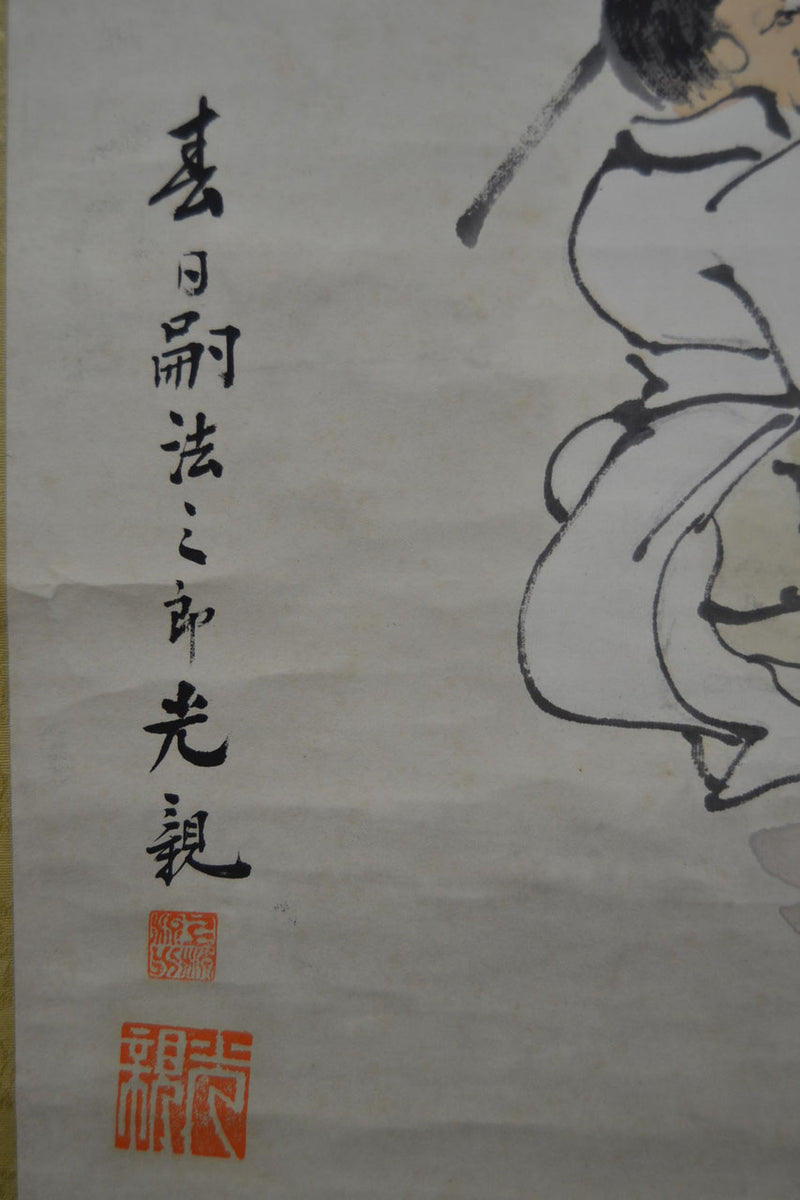 春日嗣法之郎光親
光親